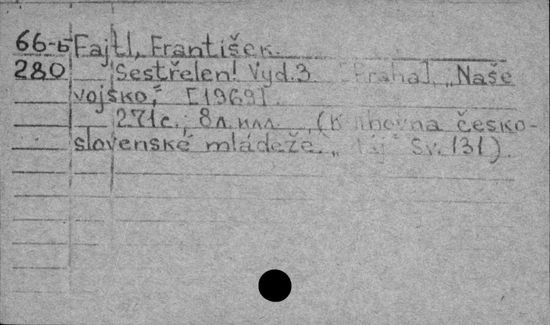 66-б Fajtl, František.
280 Sestřelen! Vyd.3 Praha], „Naše
vojsko," [1969].
271с.; 8л.илл. (Knihovna česko-
slovenské mládeže. Sv.131).